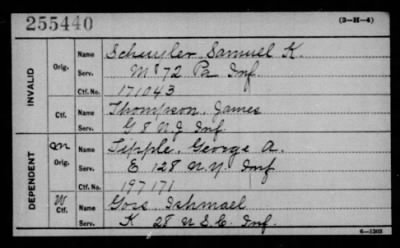 255440 (3-H-4)
INVALID
Orig. Name Schuyler, Samuel K.
Serv. M 872 Pa Inf.
Ctf. No. 171043
Ctf. Name Thompson, James
Serv. G 8 N.J. Inf
DEPENDENT
m Orig. Name Tipple, George A.
Serv. E 128 N.Y. Inf
Ctf. No. 197171
W Ctf. Name Gois Ishmael
Serv. K 28 U.S.C. Inf.
6-1303